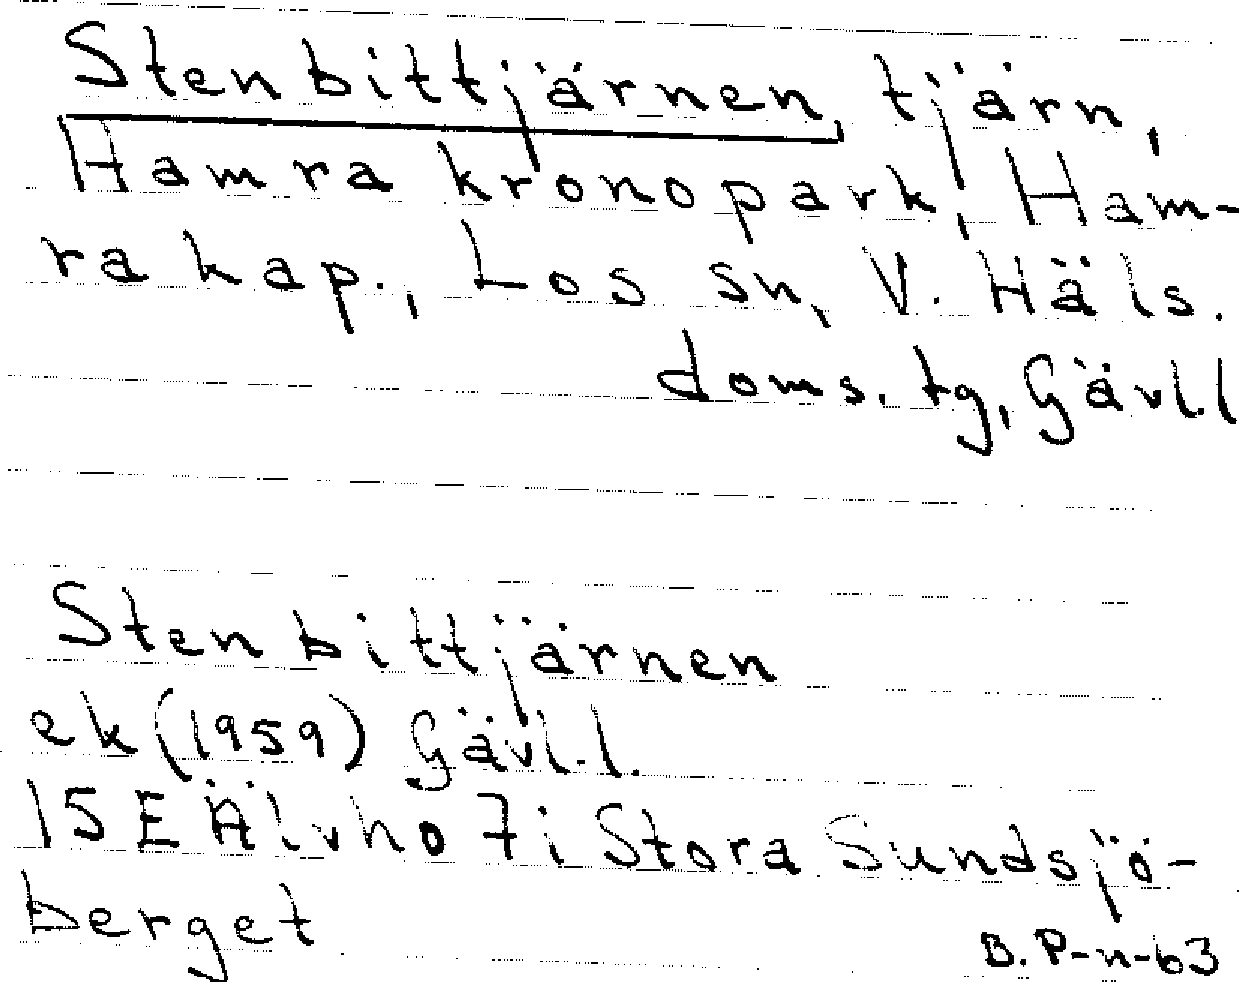 Stenbittjärnen, tjärn,
Hamra kronopark, Ham-
ra kap., Los sn, V. Häls.
doms. tg, Gävl.l
Stenbittjärnen
ek (1959) Gävl.l.
15 E Älvho 7 i Stora Sundsjö-
berget
B. P-n-63